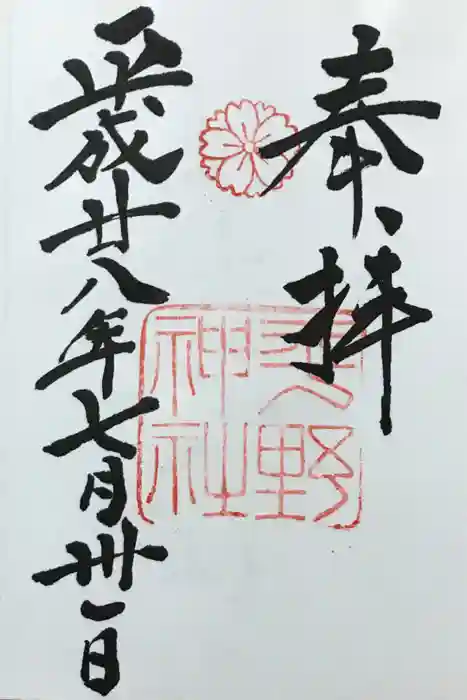 奉拝
野
神社
平成廿八年七月卅一日